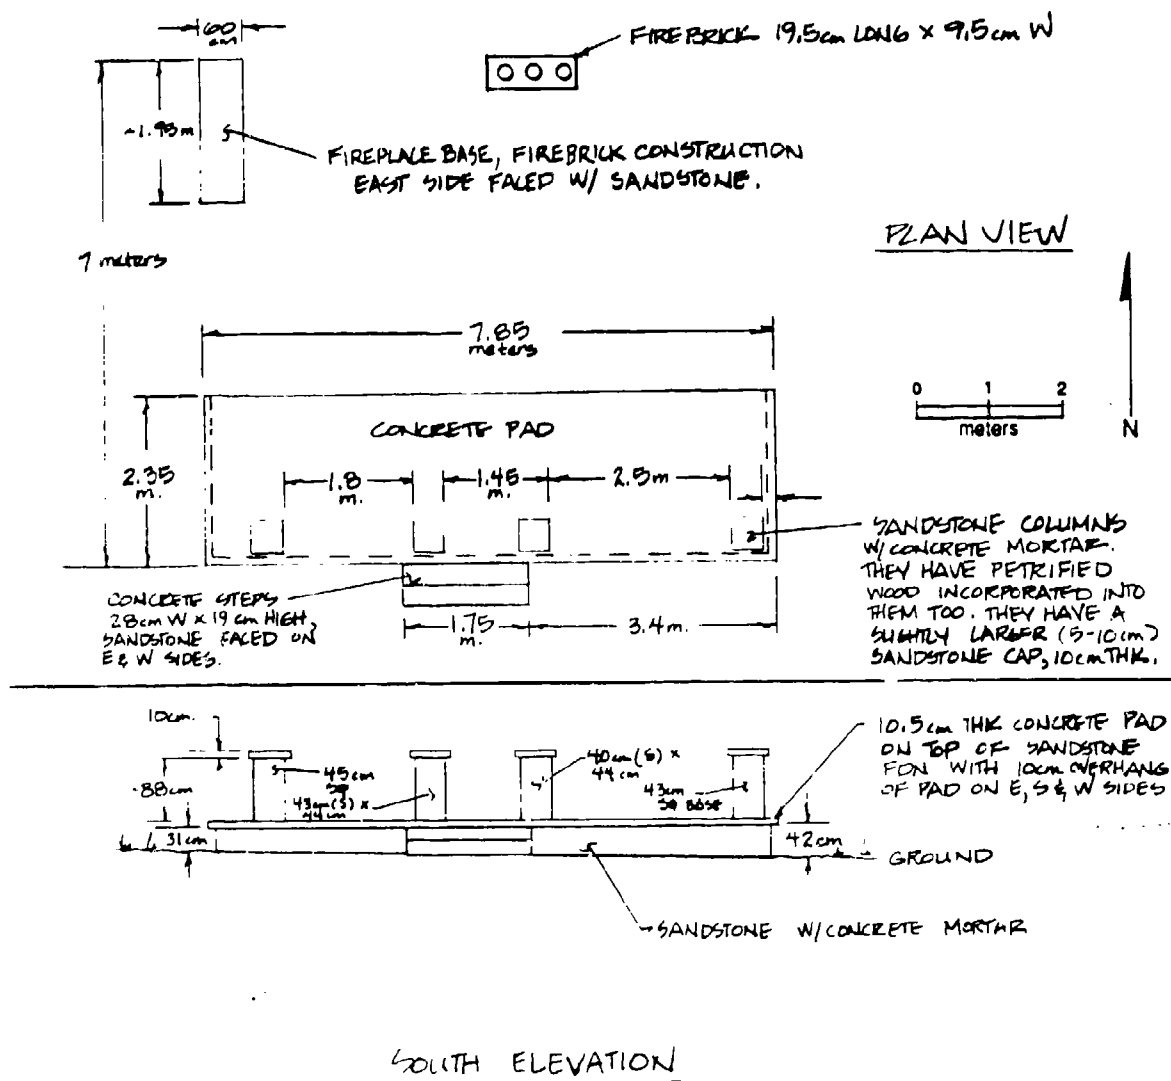 60
cm
FIREBRICK 19.5cm LONG x 9.5cm W
~1.95m
FIREPLACE BASE, FIREBRICK CONSTRUCTION
EAST SIDE FACED W/ SANDSTONE.
PLAN VIEW
7 meters
7.85
meters
0 1 2
meters
N
CONCRETE PAD
2.35
m.
1.8
m.
1.45
m.
2.5m
SANDSTONE COLUMNS
W/CONCRETE MORTAR.
THEY HAVE PETRIFIED
WOOD INCORPORATED INTO
THEM TOO. THEY HAVE A
SLIGHTLY LARGER (5-10cm)
SANDSTONE CAP, 10cm THK.
CONCRETE STEPS
28cm W x 19 cm HIGH,
SANDSTONE FACED ON
E & W SIDES.
1.75
m.
3.4m.
10cm.
88cm
45cm
SQ
43cm(S) x
44cm
40cm(S) x
44cm
43cm
SQ BASE
10.5cm THK CONCRETE PAD
ON TOP OF SANDSTONE
FDN WITH 10cm OVERHANG
OF PAD ON E, S & W SIDES
31cm
42cm
GROUND
SANDSTONE W/CONCRETE MORTAR
SOUTH ELEVATION